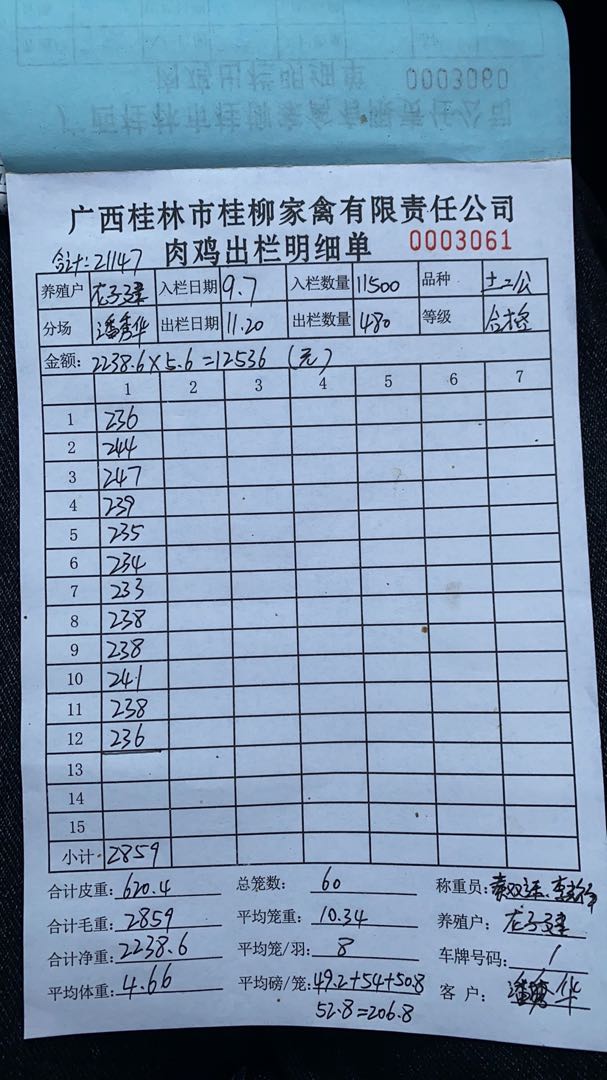 肉鸡出栏明细单 0003060
广西桂林市桂柳家禽有限责任公司
广西桂林市桂柳家禽有限责任公司
合计:21147 肉鸡出栏明细单 0003061
养殖户 入栏日期 9.7 入栏数量 11500 品种 土2公
分场 潘秀华 出栏日期 11.20 出栏数量 480 等级 合格
金额: 2238.6×5.6=12536 (元)
1 2 3 4 5 6 7
1 236
2 244
3 247
4 239
5 235
6 234
7 233
8 238
9 238
10 241
11 238
12 236
13
14
15
小计 2859
合计皮重: 620.4 总笼数: 60 称重员:
合计毛重: 2859 平均笼重: 10.34 养殖户:
合计净重: 2238.6 平均笼/羽: 8 车牌号码: 1
平均体重: 4.66 平均磅/笼: 49.2+54+50.8 客户: 潘秀华
52.8=206.8